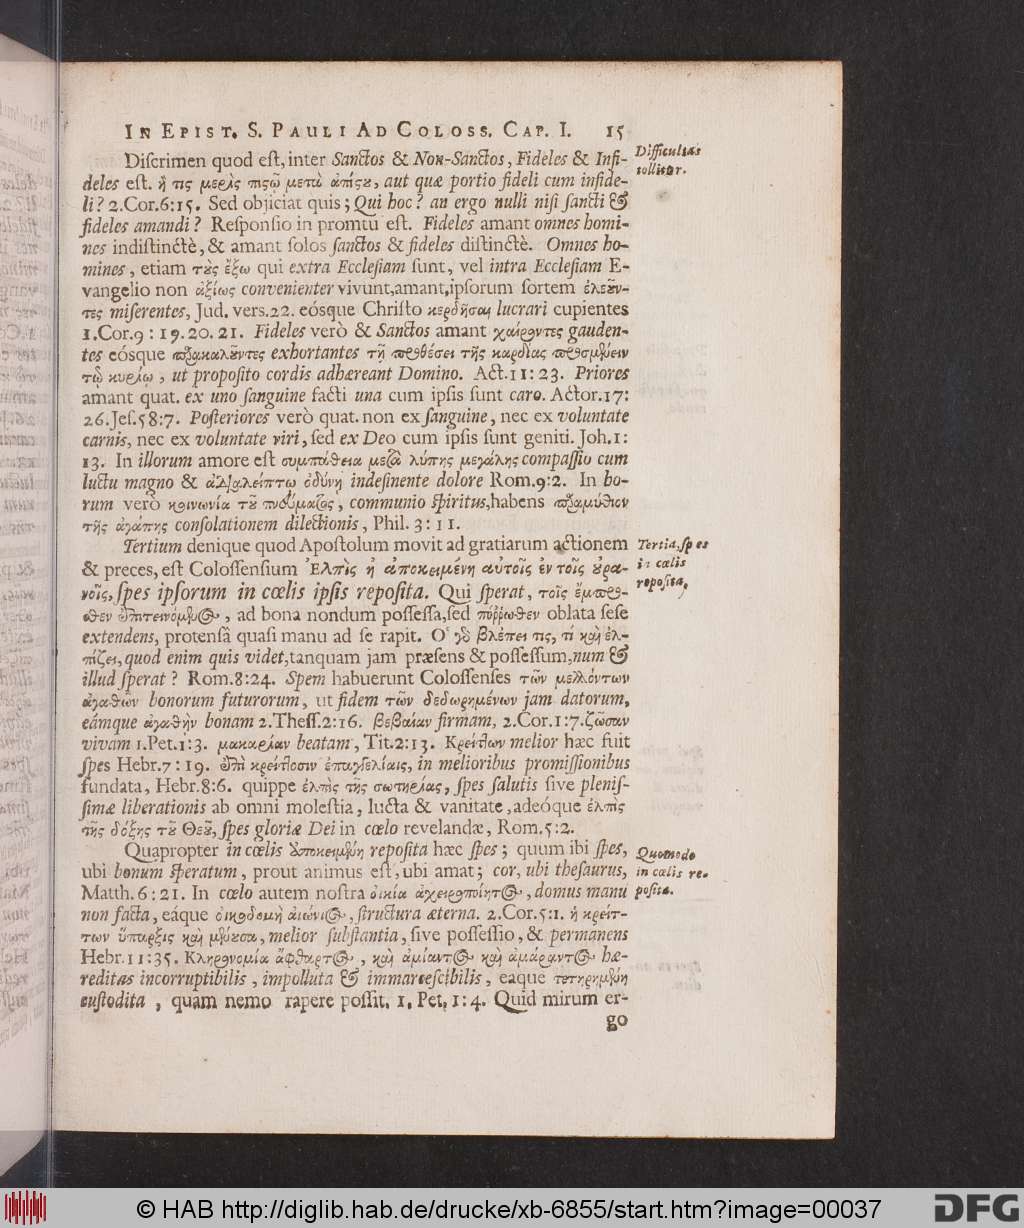 IN EPIST. S. PAULI AD COLOSS. CAP. I. 15
Diſcrimen quod eſt, inter Sanctos & Non-Sanctos, Fideles & Infi-
deles eſt. ἢ τις μερὶς πιςῷ μετὰ ἀπίςου, aut quæ portio fideli cum infide-
li? 2.Cor.6:15. Sed objiciat quis; Qui hoc? an ergo nulli niſi ſancti &
fideles amandi? Reſponſio in promtu eſt. Fideles amant omnes homi-
nes indiſtinctè, & amant ſolos ſanctos & fideles diſtinctè. Omnes ho-
mines, etiam τοὺς ἔξω qui extra Eccleſiam ſunt, vel intra Eccleſiam E-
vangelio non ἀξίως convenienter vivunt,amant,ipſorum ſortem ἐλεοῦν-
τες miſerentes, Jud. vers.22. eósque Chriſto κερδῆσαι lucrari cupientes
1.Cor.9:19.20.21. Fideles verò & Sanctos amant χαίροντες gauden-
tes eósque παρακαλοῦντες exhortantes τῇ προθέσει τῆς καρδίας προσμένειν
τῷ κυρίῳ, ut propoſito cordis adhæreant Domino. Act.11:23. Priores
amant quat. ex uno ſanguine facti una cum ipſis ſunt caro. Actor.17:
26.Jeſ.58:7. Poſteriores verò quat. non ex ſanguine, nec ex voluntate
carnis, nec ex voluntate viri, ſed ex Deo cum ipſis ſunt geniti. Joh.1:
13. In illorum amore eſt συμπάθεια μετὰ λύπης μεγάλης compaſſio cum
luctu magno & ἀδιαλείπτῳ ὀδύνῃ indeſinente dolore Rom.9:2. In ho-
rum verò κοινωνία τοῦ πνεύματος, communio ſpiritus,habens παραμύθιον
τῆς ἀγάπης conſolationem dilectionis, Phil. 3:11.
Tertium denique quod Apoſtolum movit ad gratiarum actionem
& preces, eſt Coloſſenſium Ἐλπὶς ἡ ἀποκειμένη αὐτοῖς ἐν τοῖς οὐρα-
νοῖς, ſpes ipſorum in cœlis ipſis repoſita. Qui ſperat, τοῖς ἔμπρο-
σθεν ἐπιτεινόμενος, ad bona nondum poſſeſſa,ſed πόῤῥωθεν oblata ſeſe
extendens, protenſâ quaſi manu ad ſe rapit. Ὃ γὰρ βλέπει τις, τί καὶ ἐλ-
πίζει, quod enim quis videt,tanquam jam præſens & poſſeſſum,num &
illud ſperat? Rom.8:24. Spem habuerunt Coloſſenſes τῶν μελλόντων
ἀγαθῶν bonorum futurorum, ut fidem τῶν δεδωρημένων jam datorum,
eámque ἀγαθὴν bonam 2.Theſſ.2:16. βεβαίαν firmam, 2.Cor.1:7.ζῶσαν
vivam 1.Pet.1:3. μακαρίαν beatam, Tit.2:13. Κρείττων melior hæc fuit
ſpes Hebr.7:19. ἐπὶ κρείττοσιν ἐπαγγελίαις, in melioribus promiſſionibus
fundata, Hebr.8:6. quippe ἐλπὶς τῆς σωτηρίας, ſpes ſalutis ſive pleniſ-
ſimæ liberationis ab omni moleſtia, lucta & vanitate, adeóque ἐλπὶς
τῆς δόξης τοῦ Θεοῦ, ſpes gloriæ Dei in cœlo revelandæ, Rom.5:2.
Quapropter in cœlis ἀποκειμένη repoſita hæc ſpes; quum ibi ſpes,
ubi bonum ſperatum, prout animus eſt, ubi amat; cor, ubi theſaurus,
Matth.6:21. In cœlo autem noſtra οἰκία ἀχειροποίητος, domus manu
non facta, eáque οἰκοδομὴ αἰώνιος, ſtructura æterna. 2.Cor.5:1. ἡ κρείτ-
των ὕπαρξις καὶ μένουσα, melior ſubſtantia, ſive poſſeſſio, & permanens
Hebr.11:35. Κληρονομία ἄφθαρτος, καὶ ἀμίαντος καὶ ἀμάραντος hæ-
reditas incorruptibilis, impolluta & immarceſcibilis, eaque τετηρημένη
cuſtodita, quam nemo rapere poſſit. 1. Pet. 1:4. Quid mirum er-
go
Difficultas
tollitur.
Tertia, ſpes
in cœlis
repoſita,
Quomodo
in cœlis re-
poſita.
© HAB http://diglib.hab.de/drucke/xb-6855/start.htm?image=00037
DFG